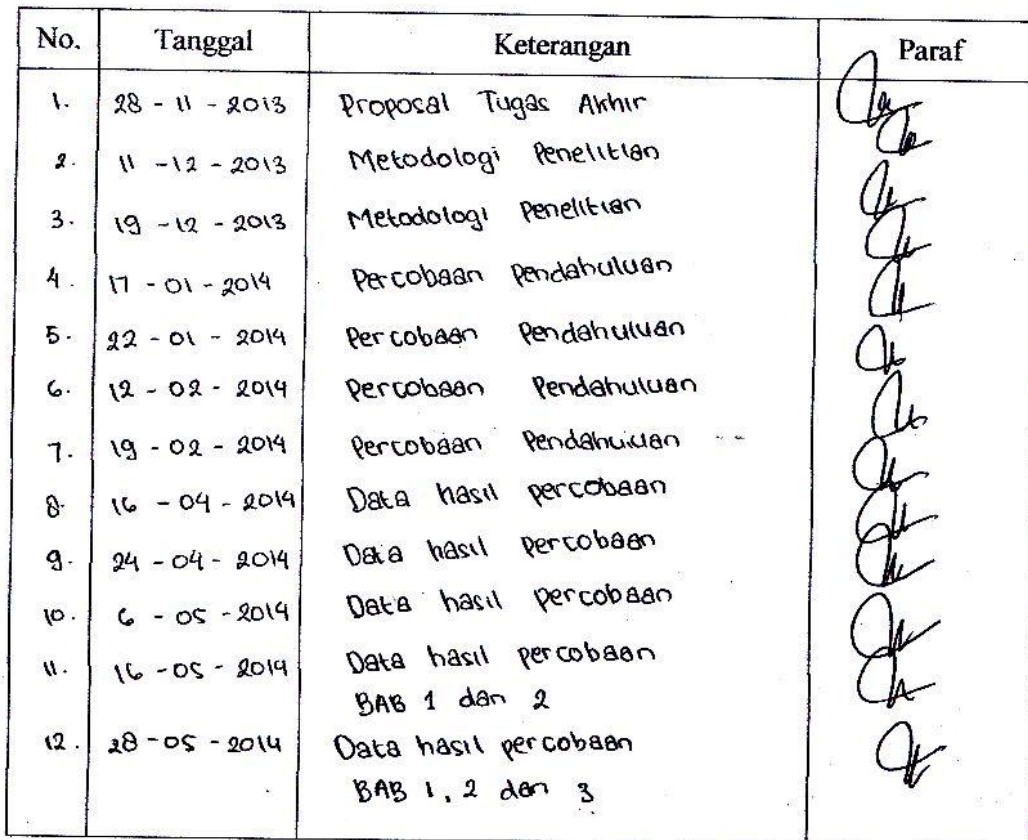 No. Tanggal Keterangan Paraf
1. 28 - 11 - 2013 Proposal Tugas Akhir
2. 11 - 12 - 2013 Metodologi Penelitian
3. 19 - 12 - 2013 Metodologi Penelitian
4. 17 - 01 - 2014 Percobaan Pendahuluan
5. 22 - 01 - 2014 Percobaan Pendahuluan
6. 12 - 02 - 2014 Percobaan Pendahuluan
7. 19 - 02 - 2014 Percobaan Pendahuluan
8. 16 - 04 - 2014 Data hasil percobaan
9. 24 - 04 - 2014 Data hasil percobaan
10. 6 - 05 - 2014 Data hasil percobaan
11. 16 - 05 - 2014 Data hasil percobaan
BAB 1 dan 2
12. 28 - 05 - 2014 Data hasil percobaan
BAB 1, 2 dan 3